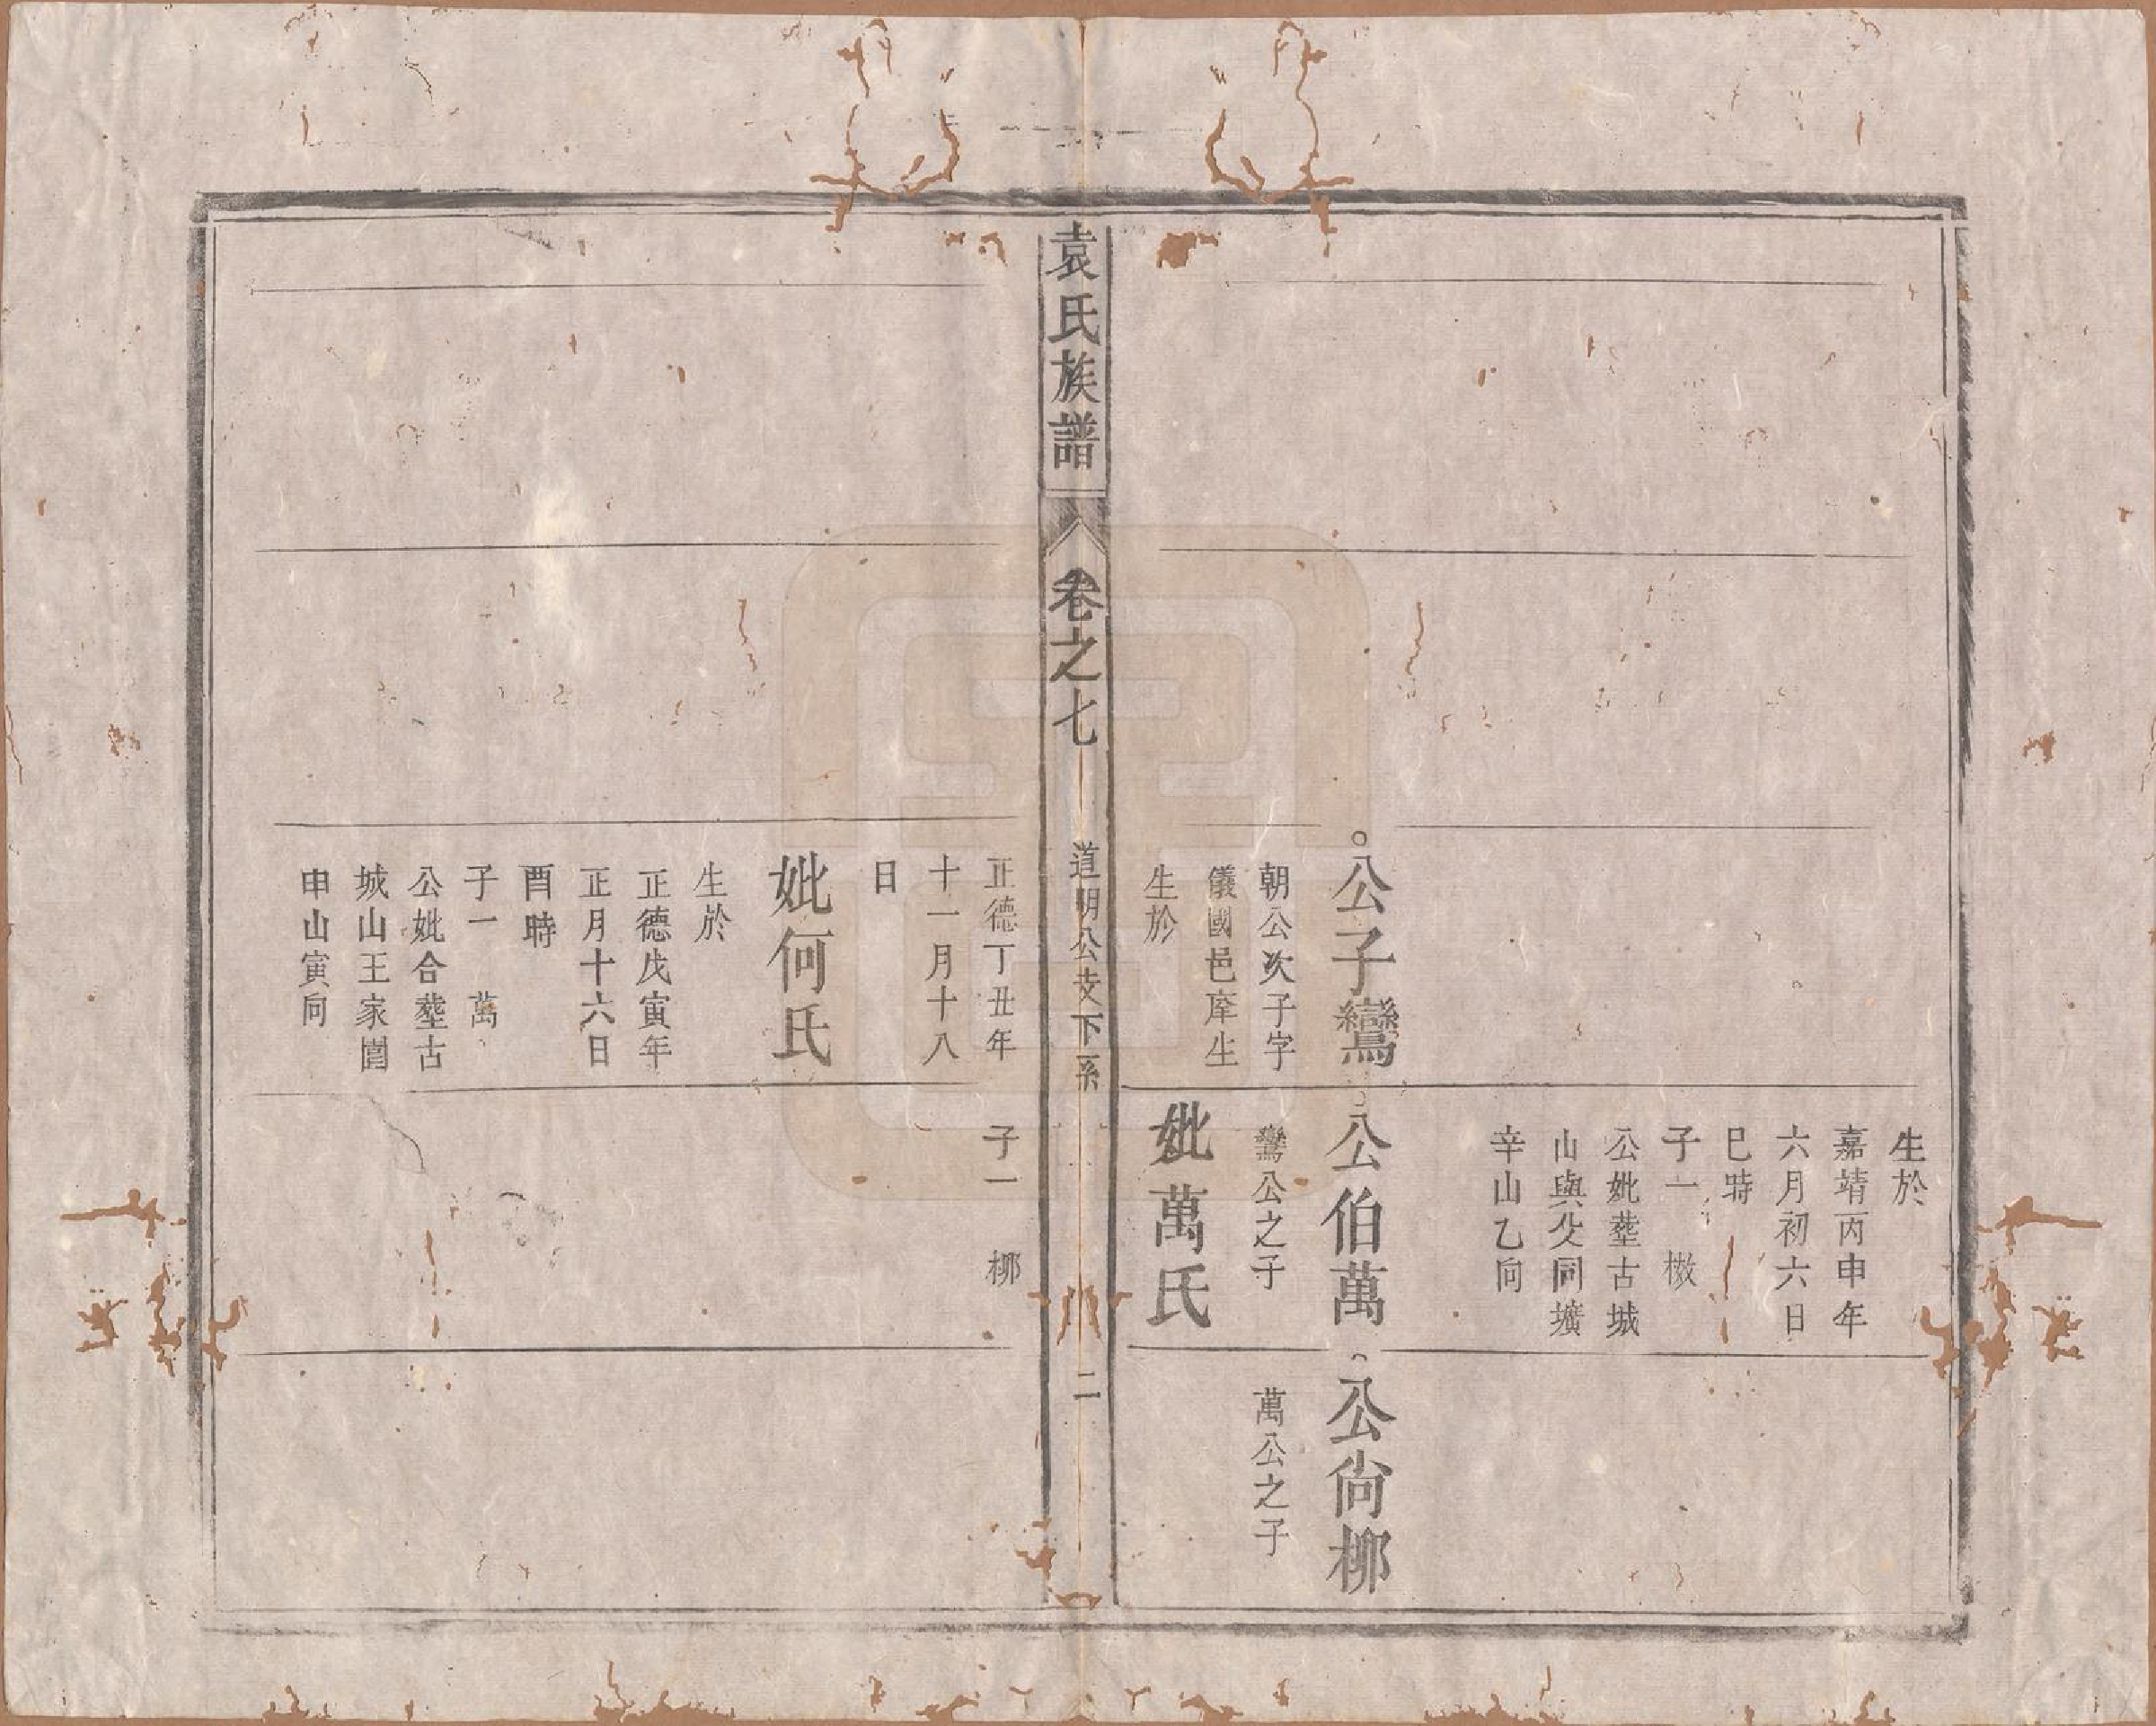 生於
嘉靖丙申年
六月初六日
巳時
子一　檄
公妣塟古城
山與父同壙
辛山乙向
公子鸞
朝公次子字
儀國邑庠生
生於
公伯萬
鸞公之子
妣萬氏
公尙柳
萬公之子
袁氏族譜
卷之七
道明公支下系
二
正德丁丑年
十一月十八
日
妣何氏
生於
正德戊寅年
正月十六日
酉時
子一　萬
公妣合塟古
城山王家園
申山寅向
子一　柳